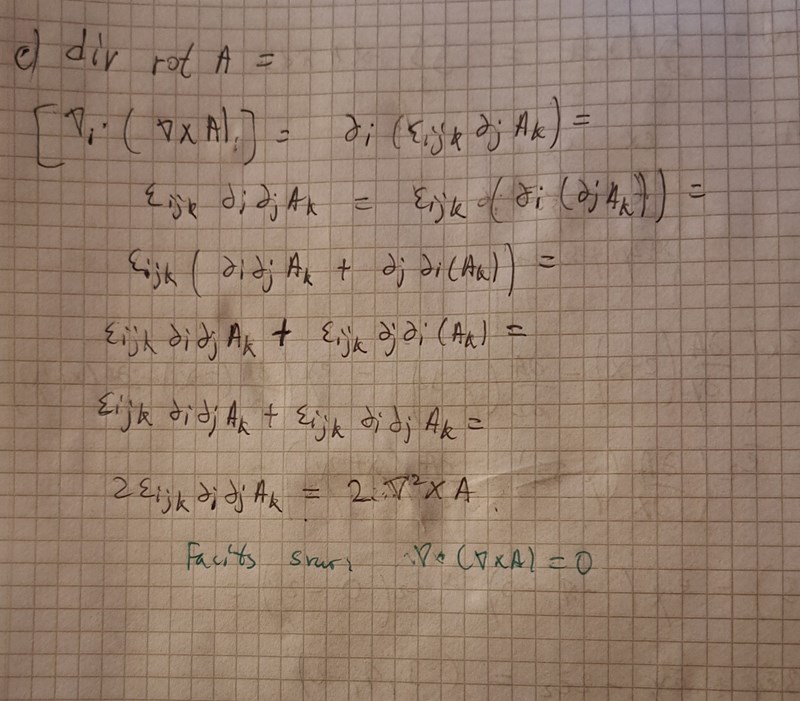 c) div rot A =
[∇ᵢ·(∇×A)ᵢ] = ∂ᵢ(εᵢⱼₖ ∂ⱼ Aₖ) =
εᵢⱼₖ ∂ᵢ∂ⱼAₖ = εᵢⱼₖ (∂ᵢ(∂ⱼAₖ)) =
εᵢⱼₖ(∂ᵢ∂ⱼAₖ + ∂ⱼ∂ᵢ(Aₖ)) =
εᵢⱼₖ ∂ᵢ∂ⱼAₖ + εᵢⱼₖ ∂ⱼ∂ᵢ(Aₖ) =
εᵢⱼₖ ∂ᵢ∂ⱼAₖ + εᵢⱼₖ ∂ᵢ∂ⱼAₖ =
2εᵢⱼₖ ∂ᵢ∂ⱼAₖ = 2∇²×A
Facits svar: ∇•(∇×A) = 0